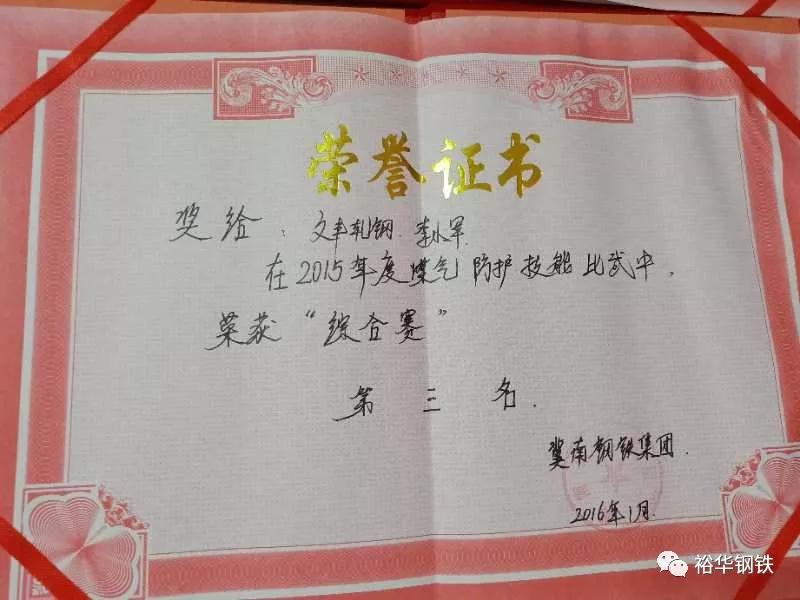 荣誉证书
奖给：文丰轧钢.李小军.
在2015年度煤气防护技能比武中,
荣获“综合赛”
第三名.
冀南钢铁集团.
2016年1月.
裕华钢铁